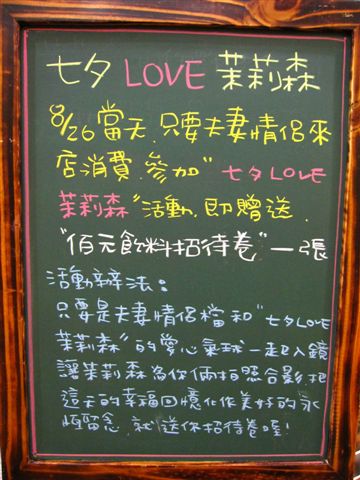 七夕 LOVE 茉莉森
8/26當天.只要夫妻情侶來
店消費.參加"七夕LOVE
茉莉森"活動.即贈送.
"佰元飲料招待卷"一張
活動辦法:
只要是夫妻情侶檔和"七夕LOVE
茉莉森"的愛心氣球一起入鏡
讓茉莉森為你倆拍照合影.把
這天的幸福回憶化作美好的永
恆留念.就送你招待卷喔!